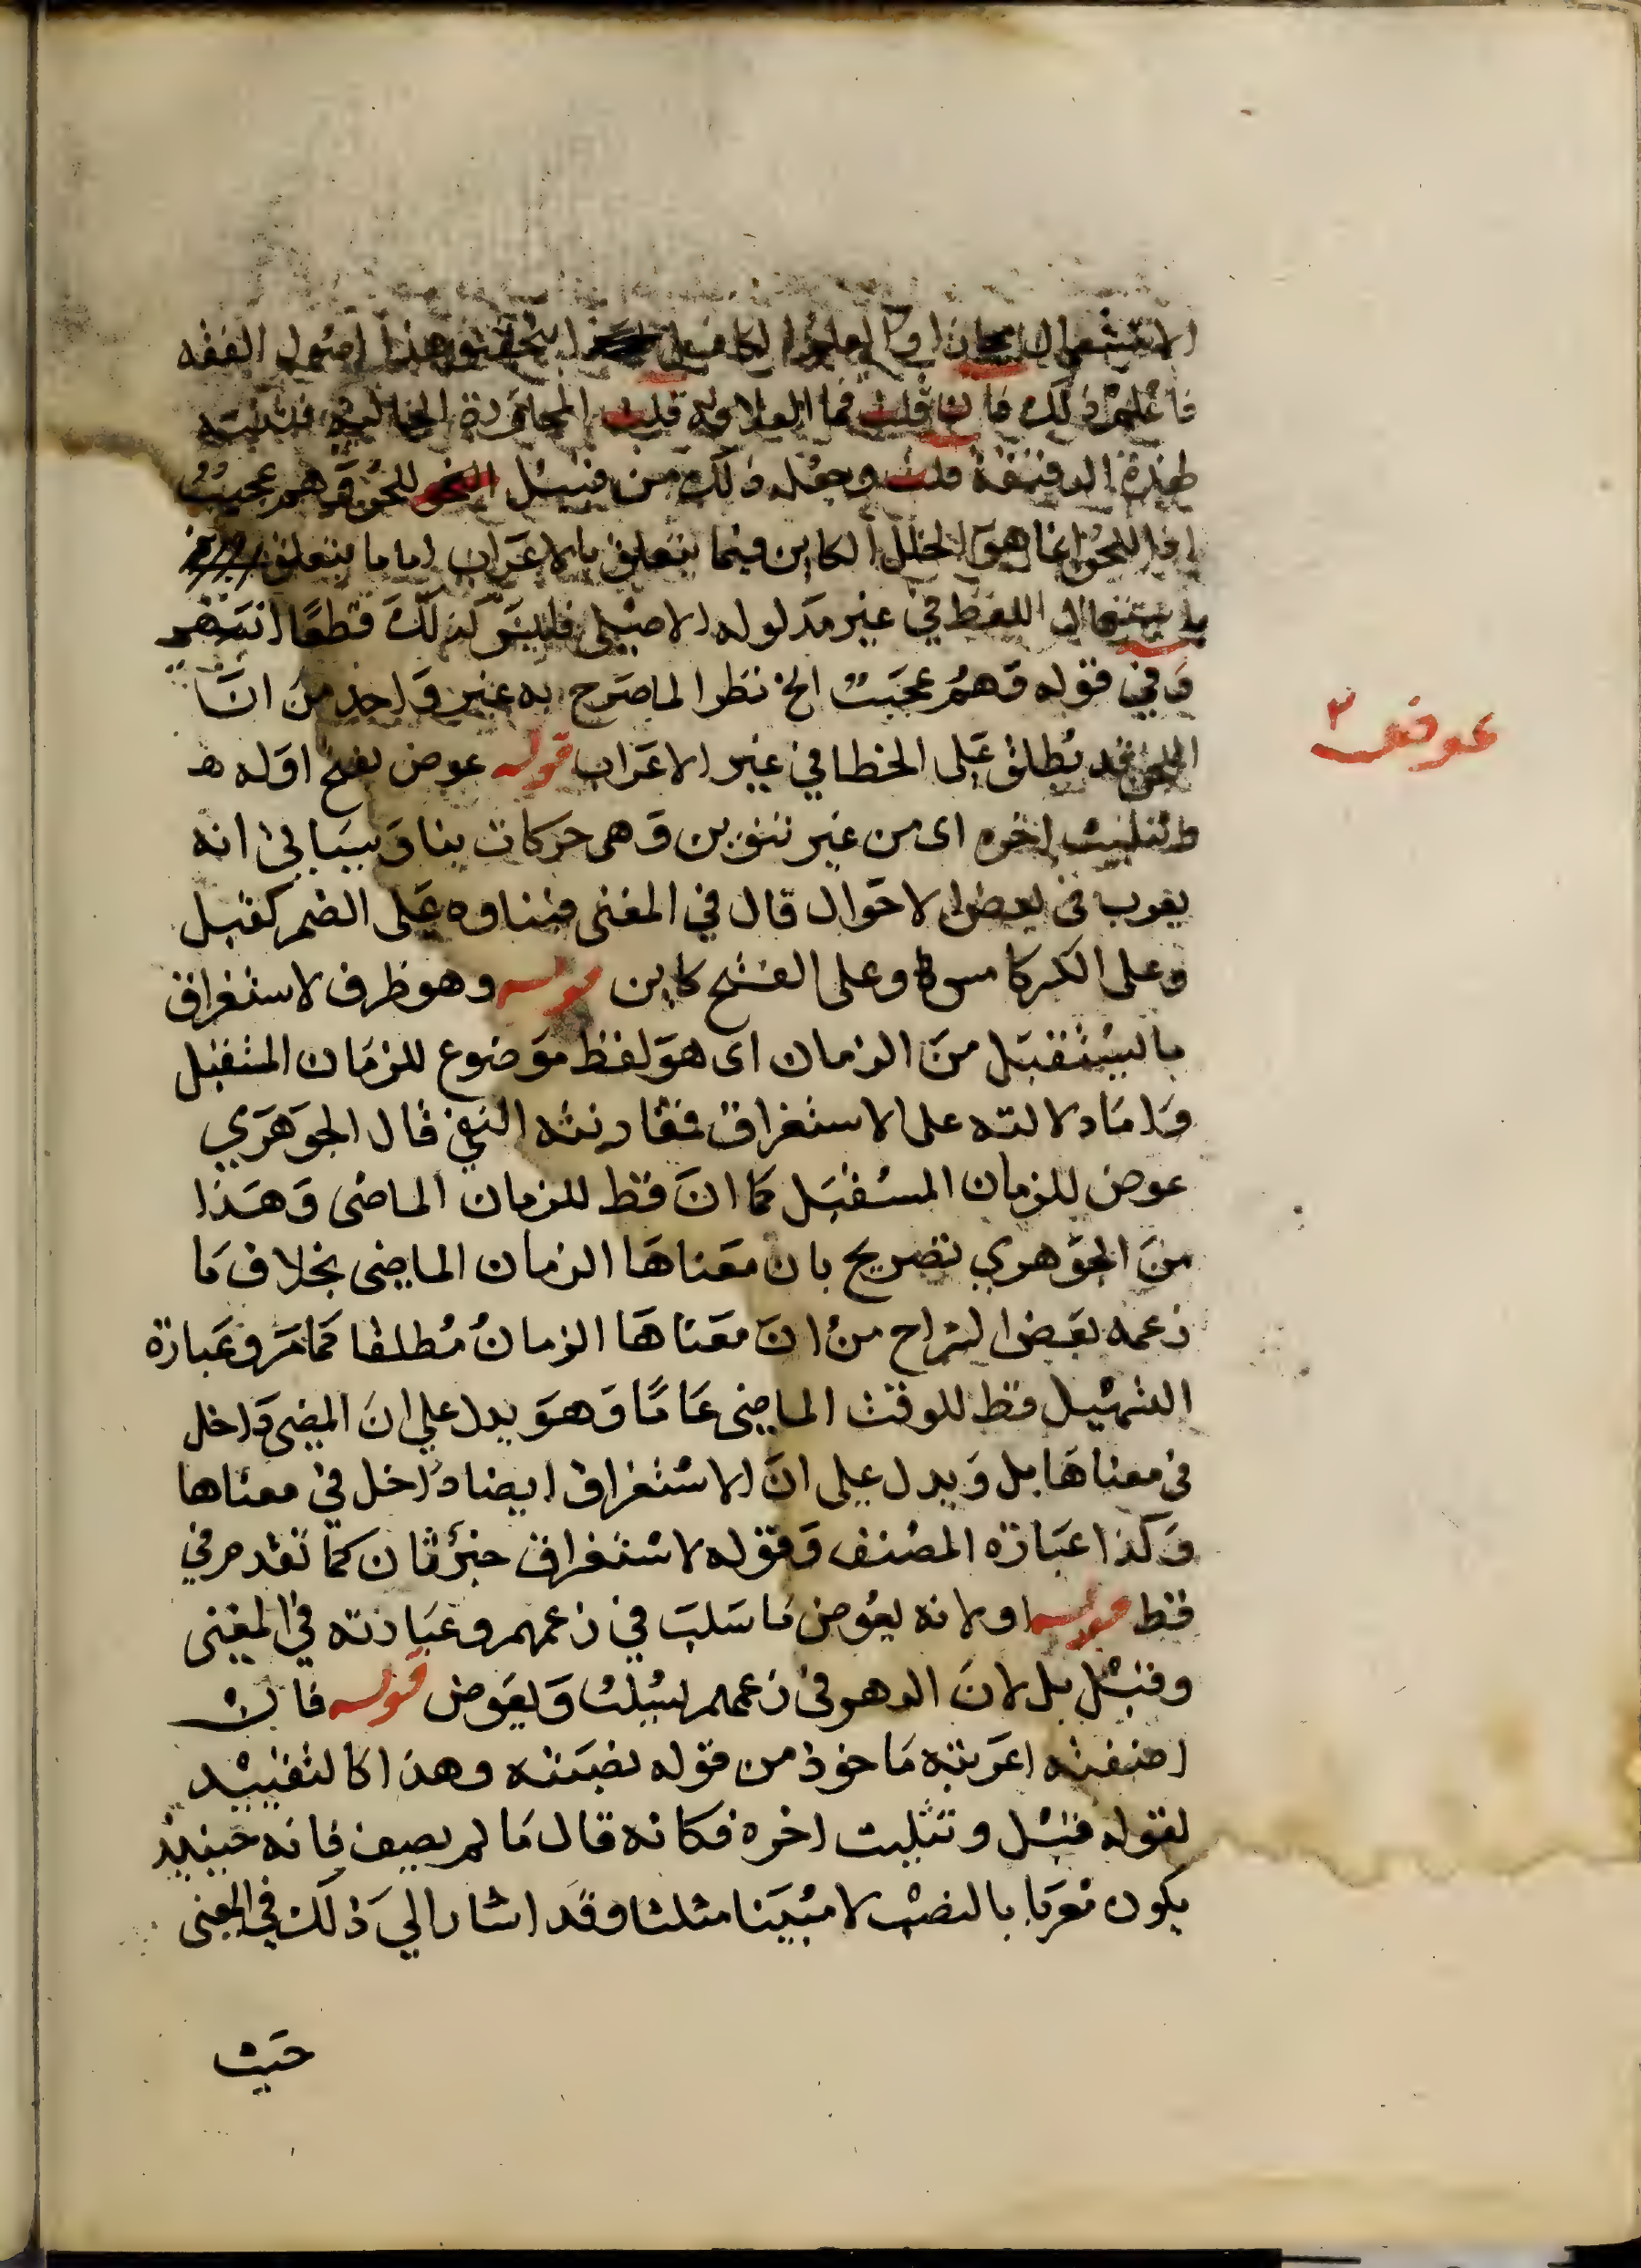 الاستعمال مجازا و العلم اصول الفقه
فاعلم ذلك فان قلت فما العلاقة قلت المجاورة فتنبه
لهذه الدقيقة قلت وجعله ذلك من قبيل اللحن وهم عجيب
اذ اللحن انما هو الخلل الكاين فيما يتعلق بالاعراب اما ما يتعلق
باستعمال اللفظ في غير مدلوله الاصلي فليس كذلك قطعا انتهى
وفي قوله وهم عجيب الخ نظر لما صرح به غير واحد من ان
اللحن قد يطلق على الخطا في غير الاعراب قوله عوض بفتح اوله
عوض ٢
وتثليث اخره اى من غير تنوين وهى حركات بنا وسياتى انه
يعرب فى بعض الاحوال قال في المغنى فبناوه على الضم كقبل
وعلى الكسر كامس وعلى الفتح كاين قوله وهو ظرف لاستغراق
ما يستقبل من الزمان اى هو لفظ موضوع للزمان المستقبل
واما دلالته على الاستغراق فمقارنته النفي قال الجوهري
عوض للزمان المستقبل كما ان قط للزمان الماضى وهذا
من الجوهري تصريح بان معناها الزمان الماضى بخلاف ما
زعمه بعض الشراح من ان معناها الزمان مطلقا كما مر وعبارة
التسهيل قط للوقت الماضى عاما وهو يدل على ان المضى داخل
فى معناها بل ويدل على ان الاستغراق ايضا داخل في معناها
وكذا عبارة المصنف وقوله لاستغراق خبر ثان كما تقدم في
قط قوله ولانه يعوض ما سلب في زعمهم وعبارته في المغنى
وقيل بل لان الدهر فى زعمهم يسلب ويعوض قوله فان
اضفته اعربته ماخوذ من قوله نصبته وهذا كالتقييد
لقوله قبل وتثليث اخره فكانه قال ما لم يضف فانه حينيذ
يكون معربا بالنصب لا مبنيا مثلثا وقد اشار الي ذلك في المغنى
حيث